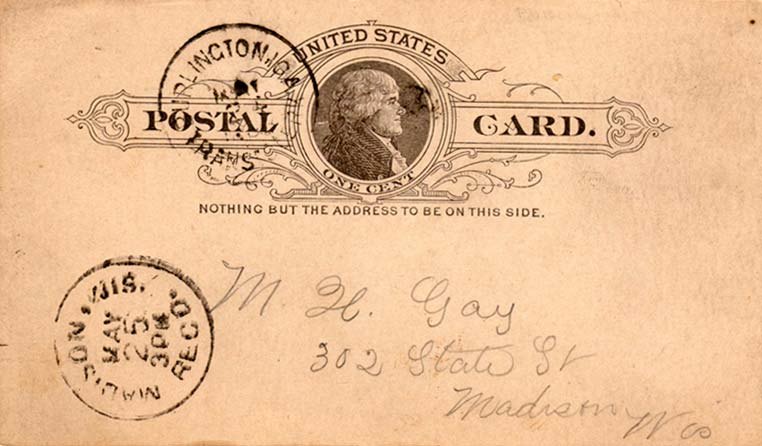 UNITED STATES
POSTAL CARD.
ONE CENT
NOTHING BUT THE ADDRESS TO BE ON THIS SIDE.
RLINGTON, IOWA
TRANS
MADISON, WIS.
MAY
25
3PM
REC'D.
M. H. Gay
302 State St
Madison Wis